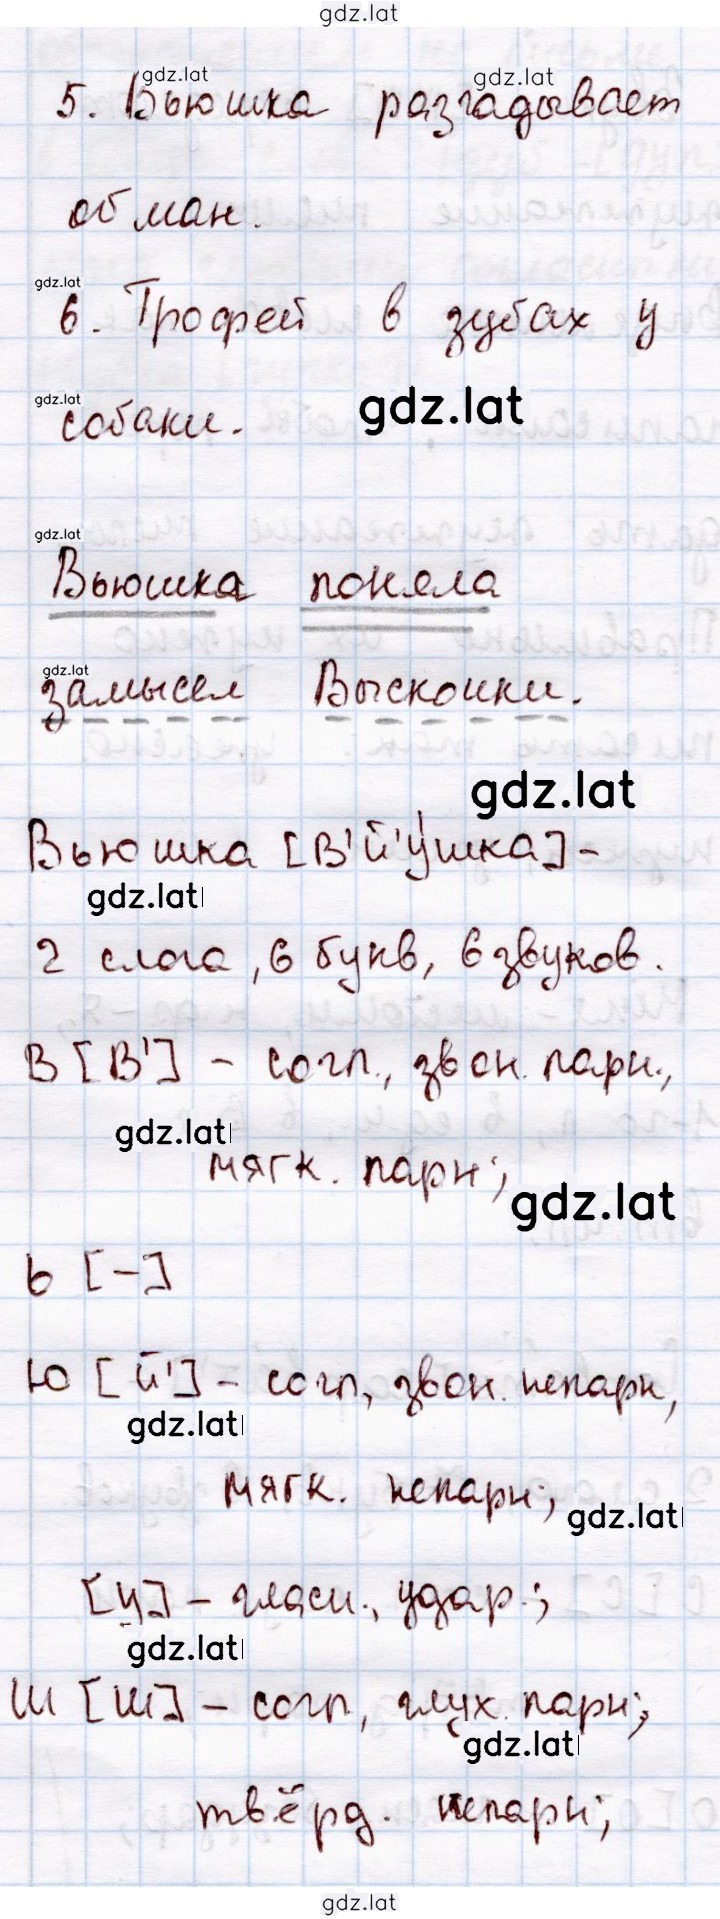 gdz.lat
gdz.lat gdz.lat
5. Вьюшка разгадывает
обман.
gdz.lat
6. Трофей в зубах у
gdz.lat
собаки. gdz.lat
gdz.lat
Вьюшка поняла
gdz.lat
замысел Выскочки.
gdz.lat
Вьюшка [в'й'у́шка] –
gdz.lat
2 слога, 6 букв, 6 звуков.
В [в'] – согл., звон. парн.,
gdz.lat
мягк. парн.;
gdz.lat
ь [–]
ю [й'] – согл, звон. непарн,
gdz.lat
мягк. непарн;
gdz.lat
[у] – гласн., удар.;
gdz.lat
ш [ш] – согл, глух. парн;
gdz.lat
твёрд. непарн;
gdz.lat